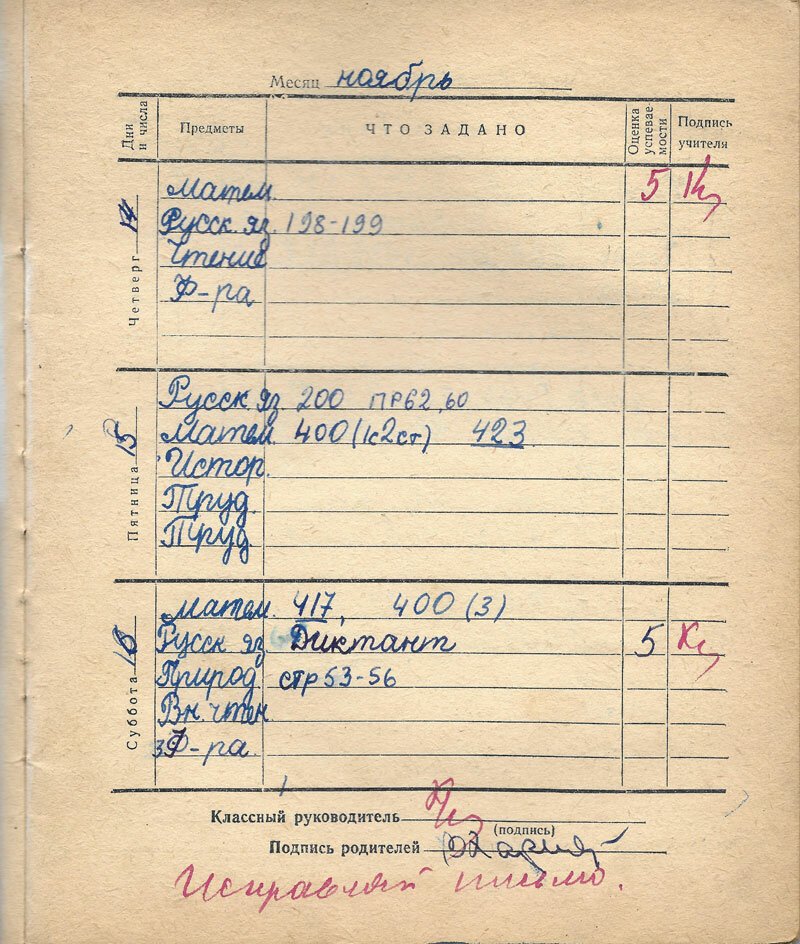 Месяц ноябрь
Дни и числа Предметы ЧТО ЗАДАНО Оценка успевае- мости Подпись учителя
Четверг 14
Матем. 5
Русск. яз. 198-199
Чтение
Ф-ра
Пятница 15
Русск. яз. 200 ПР62,60
Матем. 400 (1с2ст) 423
Истор.
Труд.
Труд.
Суббота 16
Матем. 417, 400 (3)
Русск. яз. Диктант 5
Природ. стр 53-56
Вн. чтен
Ф-ра.
Классный руководитель
(подпись)
Подпись родителей
Исправляй письмо.